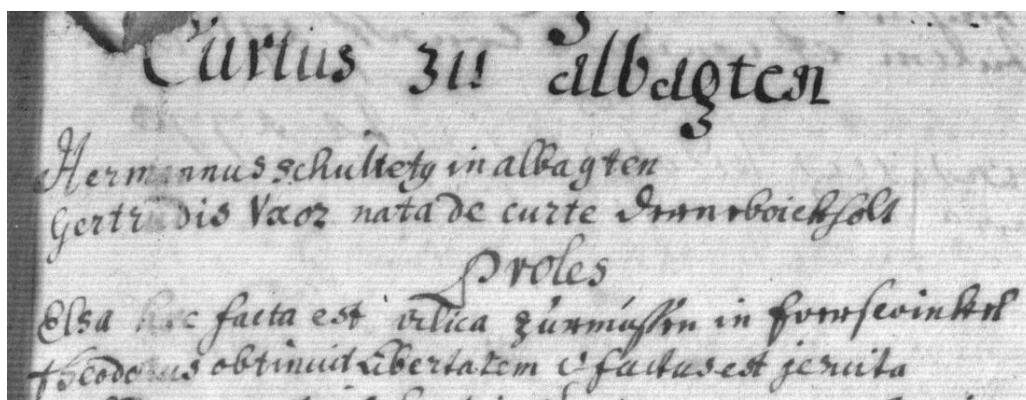 Curtius zu albagten
Hermannus schultetg in albagten
Gertrudis Vxor nata de curte
Proles
Elsa hec facta est vilica zurmussen in Everswinkel
theodorus obtinuit libertatem & factus est jesuita